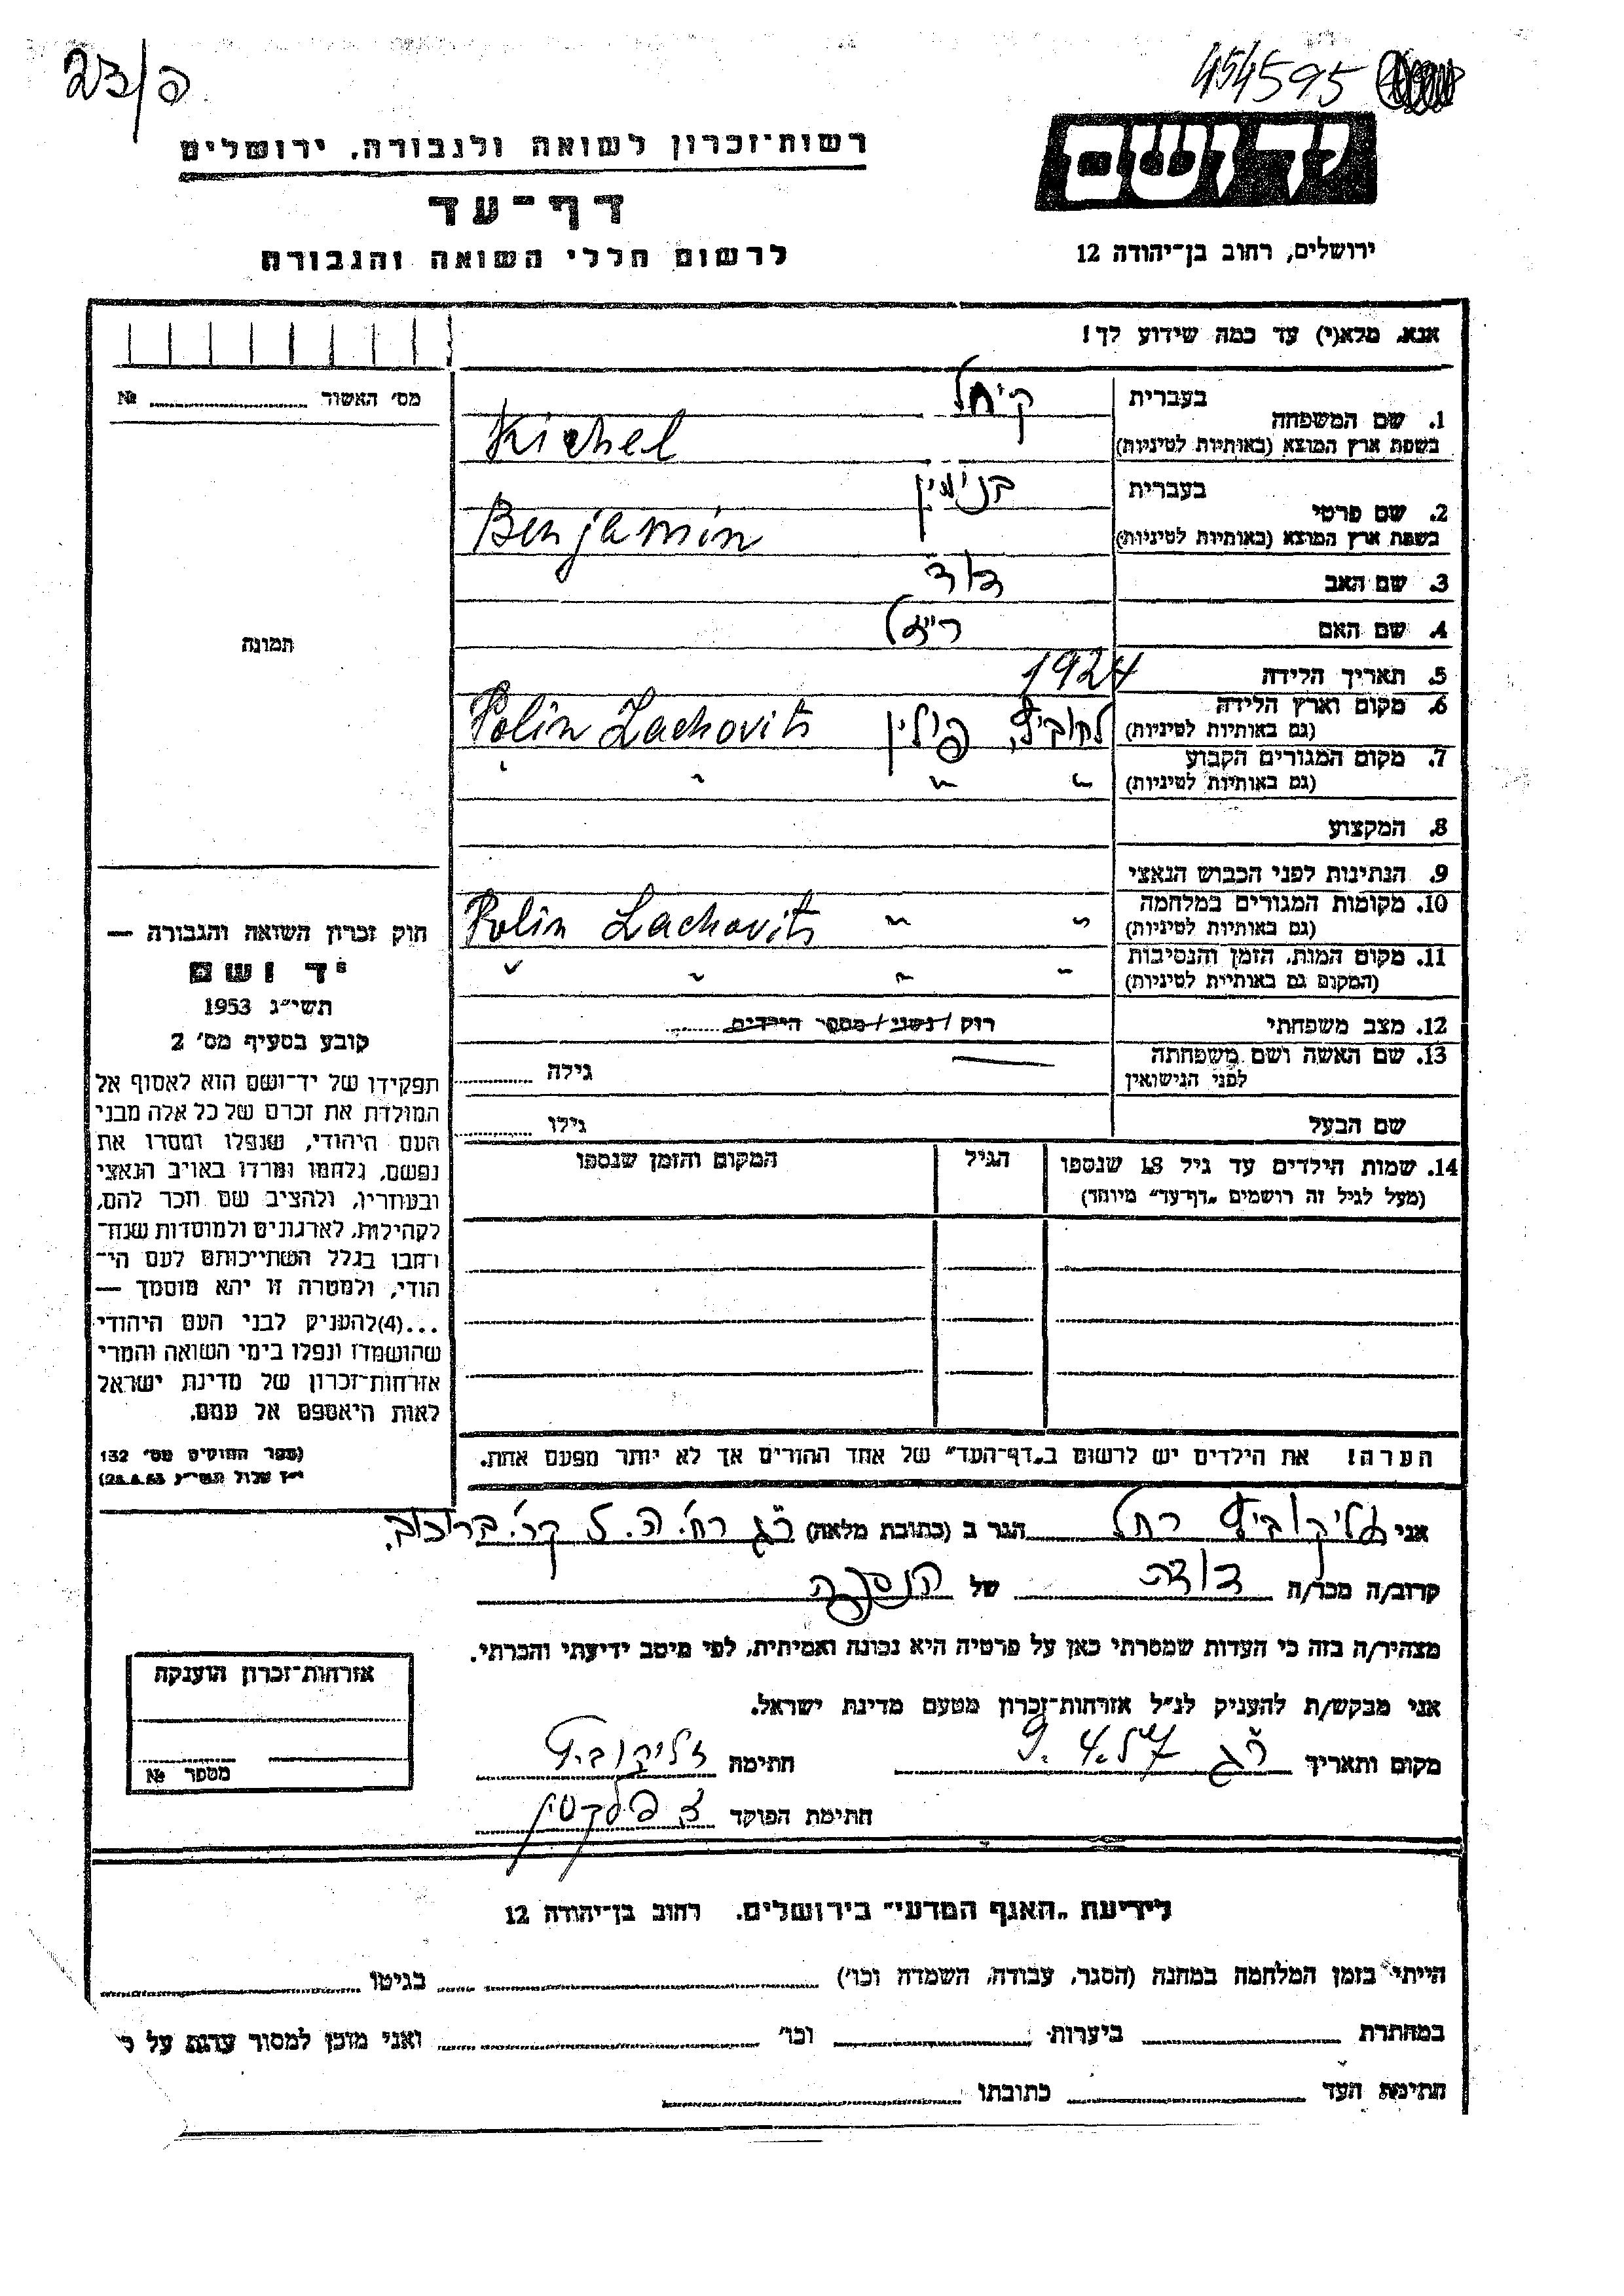 23/ה
454595
רשות־זכרון לשואה ולגבורה, ירושלים
יד ושם
דף־עד
לרשום חללי השואה והגבורה
ירושלים, רחוב בן־יהודה 12
אנא, מלא(י) עד כמה שידוע לך!
מס' האשור № 
1. שם המשפחה
בעברית קיחל
בשפת ארץ המוצא (באותיות לטיניות) Kichel
2. שם פרטי
בעברית בנימין
בשפת ארץ המוצא (באותיות לטיניות) Benjamin
3. שם האב דוד
4. שם האם רייזל
5. תאריך הלידה 1924
6. מקום וארץ הלידה
(גם באותיות לטיניות) לחוביץ, פולין Polin Lachovits
7. מקום המגורים הקבוע
(גם באותיות לטיניות) " " " "
8. המקצוע
9. הנתינות לפני הכבוש הנאצי
10. מקומות המגורים במלחמה
(גם באותיות לטיניות) " " Polin Lachovits
11. מקום המות, הזמן והנסיבות
(המקום גם באותיות לטיניות) " " " "
12. מצב משפחתי רוק / נשוי / מספר הילדים
13. שם האשה ושם משפחתה
לפני הנישואין — גילה
שם הבעל גילו
14. שמות הילדים עד גיל 18 שנספו
(מעל לגיל זה רושמים „דף־עד” מיוחד)
הגיל
המקום והזמן שנספו
הערה! את הילדים יש לרשום ב„דף־העד” של אחד ההורים אך לא יותר מפעם אחת.
תמונה
חוק זכרון השואה והגבורה —
יד ושם
תשי״ג 1953
קובע בסעיף מס' 2
תפקידו של יד־ושם הוא לאסוף אל
המולדת את זכרם של כל אלה מבני
העם היהודי, שנפלו ומסרו את
נפשם, נלחמו ומרדו באויב הנאצי
ובעוזריו, ולהציב שם וזכר להם,
לקהילות, לארגונים ולמוסדות שנח־
רבו בגלל השתייכותם לעם הי־
הודי, ולמטרה זו יהא מוסמך —
...(4)להעניק לבני העם היהודי
שהושמדו ונפלו בימי השואה והמרי
אזרחות־זכרון של מדינת ישראל
לאות היאספם אל עמם.
(ספר החוקים מס' 132
י״ז אלול תשי״ג 28.8.53)
אני זליקוביץ רחל הגר ב (כתובת מלאה) ר״ג רח'. ה. ל קר'. ברוכוב.
קרוב/ה מכר/ה דודה של הנספה
מצהיר/ה בזה כי העדות שמסרתי כאן על פרטיה היא נכונה ואמיתית, לפי מיטב ידיעתי והכרתי.
אני מבקש/ת להעניק לנ״ל אזרחות־זכרון מטעם מדינת ישראל.
מקום ותאריך ר״ג 9.4.57 חתימה זליקוביץ
חתימת הפוקד
אזרחות־זכרון הוענקה
מספר №
לידיעת „האגף המדעי” בירושלים. רחוב בן־יהודה 12
הייתי בזמן המלחמה במחנה (הסגר, עבודה, השמדה וכו') בגיטו
במחתרת ביערות וכו' ואני מוכן למסור עדות על כ
חתימת העד כתובתו